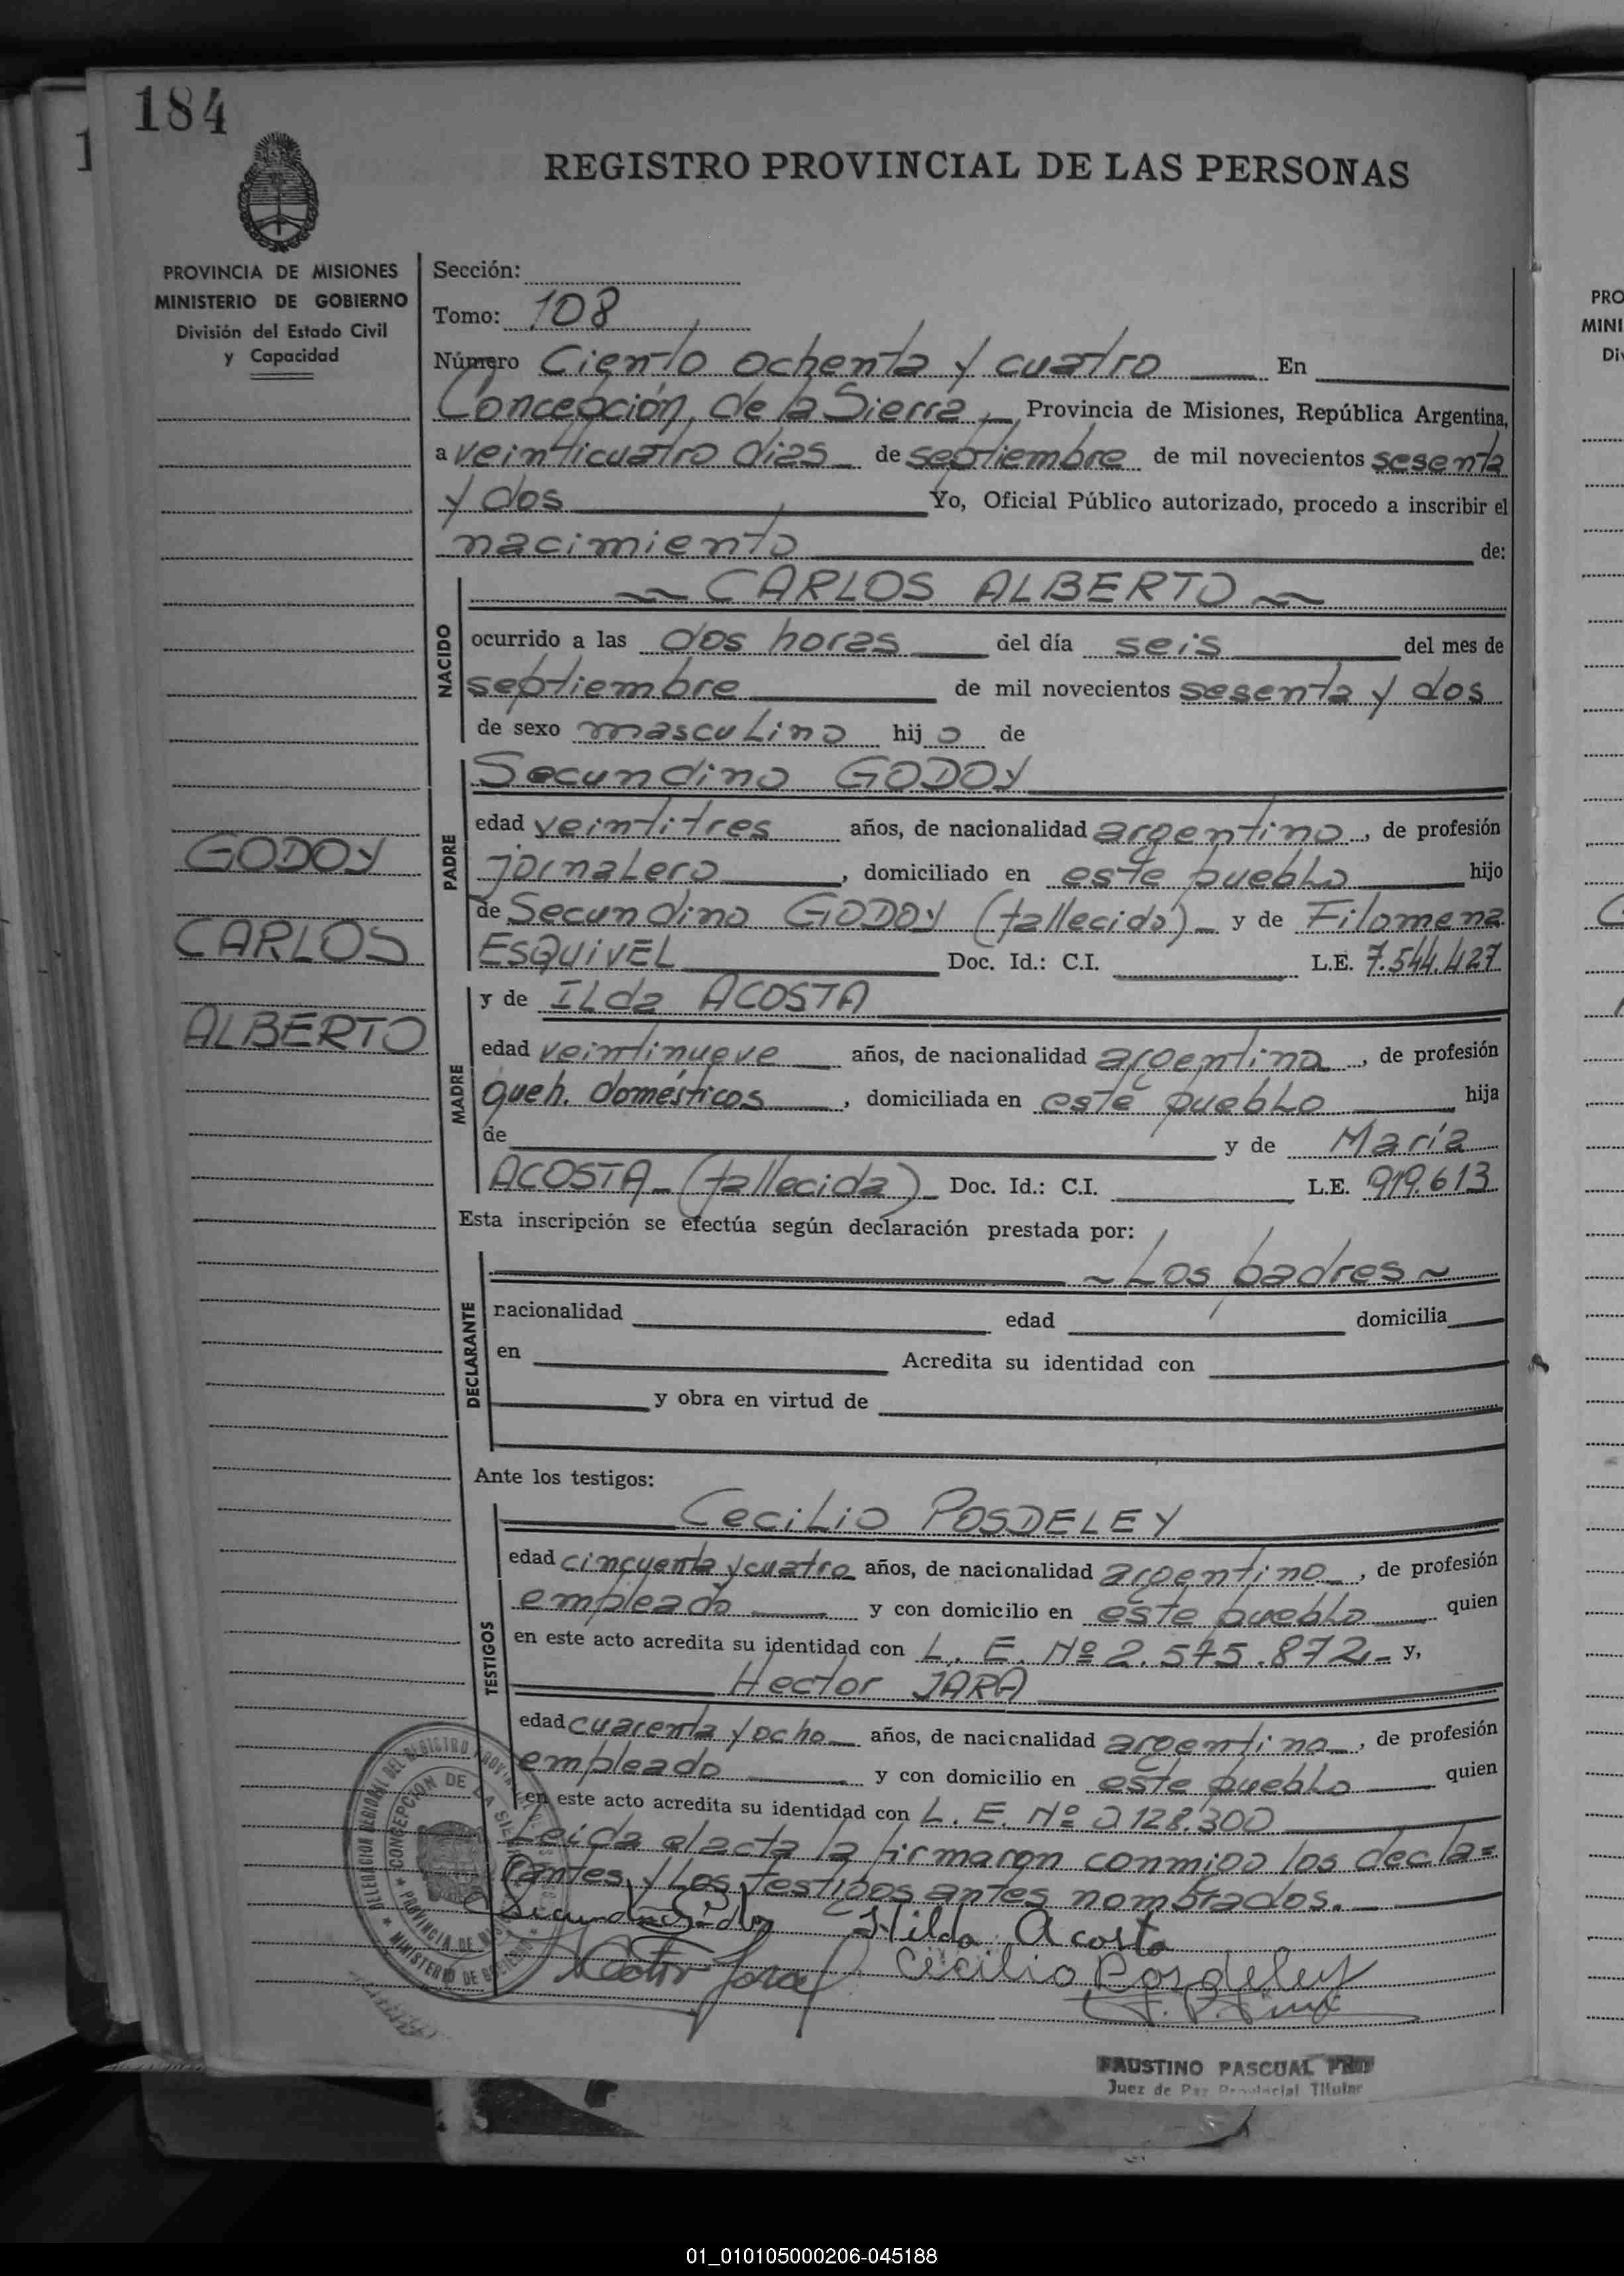 184
REGISTRO PROVINCIAL DE LAS PERSONAS
PROVINCIA DE MISIONES
MINISTERIO DE GOBIERNO
División del Estado Civil
y Capacidad
GODOY
CARLOS
ALBERTO
Sección:
Tomo: 108
Número Ciento ochenta y cuatro En
Concepción de la Sierra, Provincia de Misiones, República Argentina,
a veinticuatro dias de septiembre de mil novecientos sesenta
y dos Yo, Oficial Público autorizado, procedo a inscribir el
nacimiento de:
NACIDO
~ CARLOS ALBERTO ~
ocurrido a las dos horas del día seis del mes de
septiembre de mil novecientos sesenta y dos
de sexo masculino hijo de
PADRE
Secundino GODOY
edad veintitres años, de nacionalidad argentino, de profesión
jornalero, domiciliado en este pueblo hijo
de Secundino GODOY (fallecido) y de Filomena
ESQUIVEL Doc. Id.: C.I. L.E. 7.544.427
MADRE
y de ILda ACOSTA
edad veintinueve años, de nacionalidad argentina, de profesión
queh. domésticos, domiciliada en este pueblo hija
de y de María
ACOSTA - (fallecida) Doc. Id.: C.I. L.E. 919.613
Esta inscripción se efectúa según declaración prestada por:
DECLARANTE
~ Los padres ~
nacionalidad edad domicilia
en Acredita su identidad con
y obra en virtud de
Ante los testigos:
TESTIGOS
Cecilio POSDELEY
edad cincuenta y cuatro años, de nacionalidad argentino, de profesión
empleado y con domicilio en este pueblo quien
en este acto acredita su identidad con L. E. Nº 2.575.872 - y,
Hector JARA
edad cuarenta y ocho años, de nacionalidad argentino, de profesión
empleado y con domicilio en este pueblo quien
en este acto acredita su identidad con L. E. Nº 2.128.300
Leida el acta la firmaron conmigo los decla=
rantes y los testigos antes nombrados.
Hilda Acosta
Hector Jara Cecilio Posdeley
DELEGACION REGIONAL DEL REGISTRO PROVINCIAL
CONCEPCION DE LA SIERRA
PROVINCIA DE MISIONES
MINISTERIO DE GOBIERNO
FAUSTINO PASCUAL
Juez de Paz Provincial Titular
PRO
MINI
01_010105000206-045188